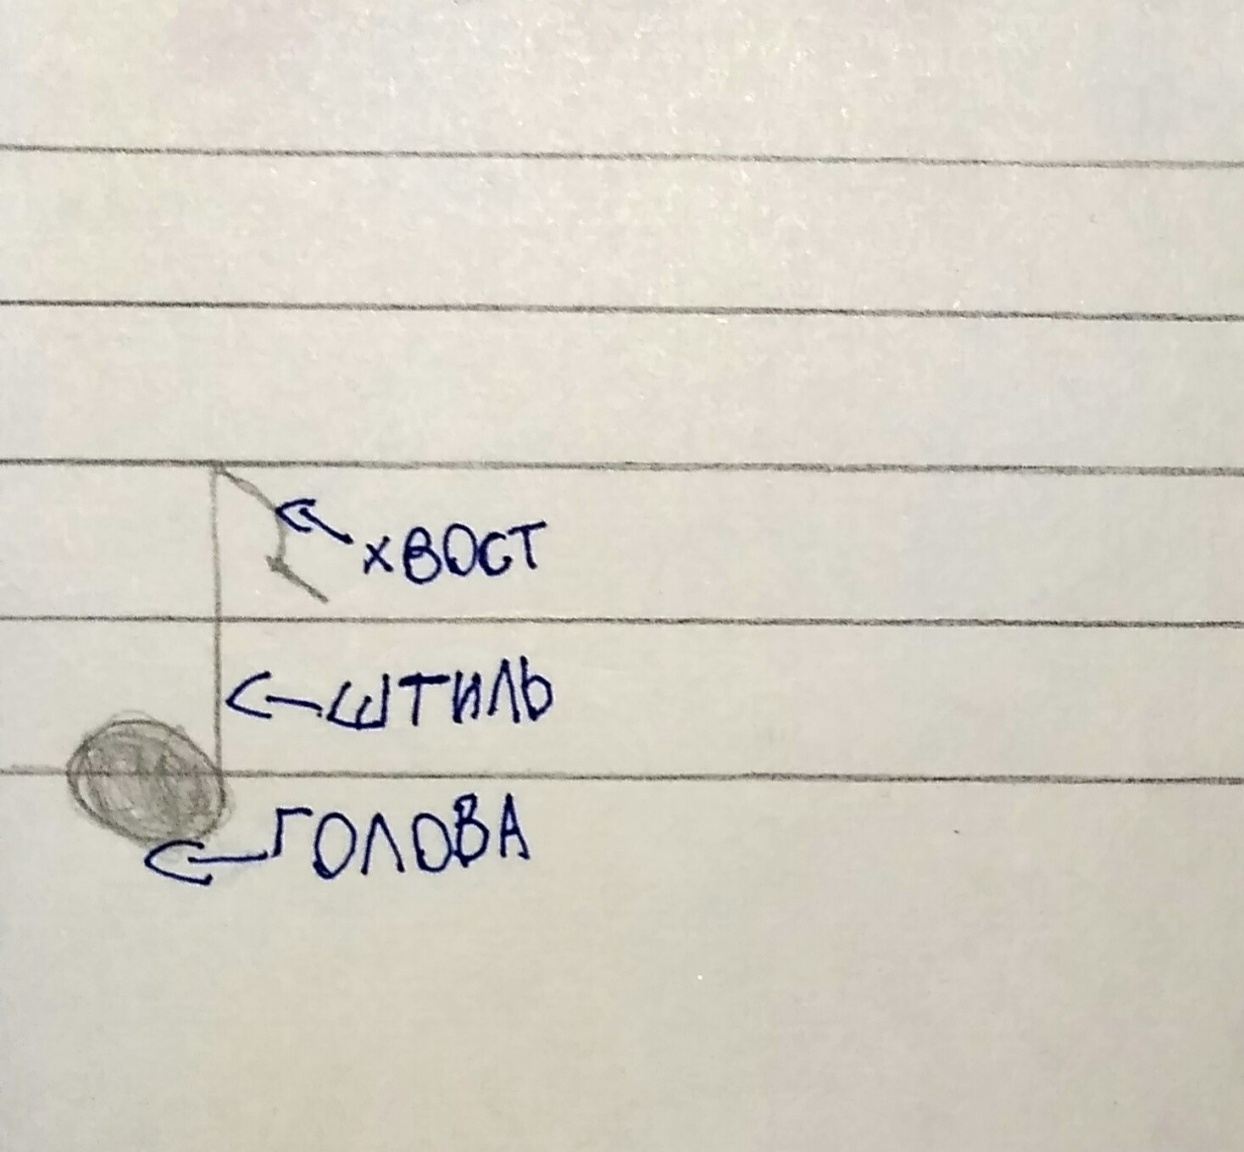 хвост
штиль
голова